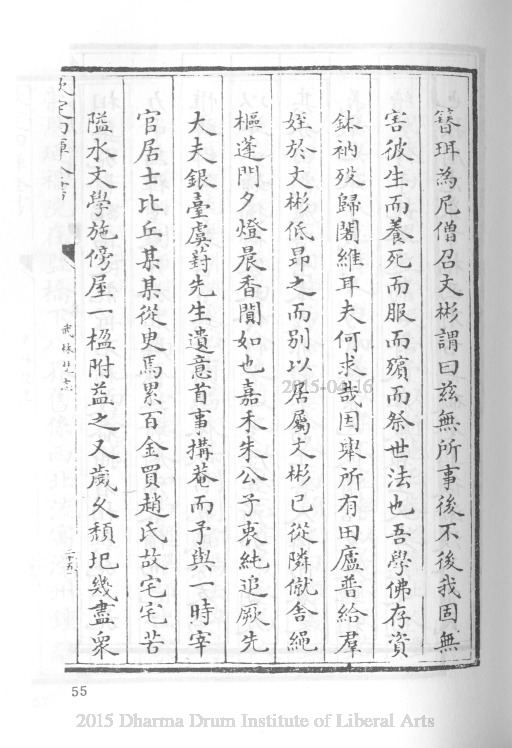 簪珥為尼僧召文彬謂曰兹無所事後不後我固無
害彼生而養死而服而殯而祭世法也吾學佛存資
鉢衲歿歸闍維耳夫何求哉因舉所有田廬普給羣
姪於文彬低昂之而別以居屬文彬已從隣僦舍繩
樞蓬門夕燈晨香闃如也嘉禾朱公子衷純追厥先
大夫銀臺虞葑先生遺意首事搆菴而予與一時宰
官居士比丘某某從臾焉累百金買趙氏故宅宅苦
隘水文學施傍屋一楹附益之又歲久頽圯幾盡衆
欽定四庫全書
武林梵志
二十五
55
2015-04-16
2015 Dharma Drum Institute of Liberal Arts